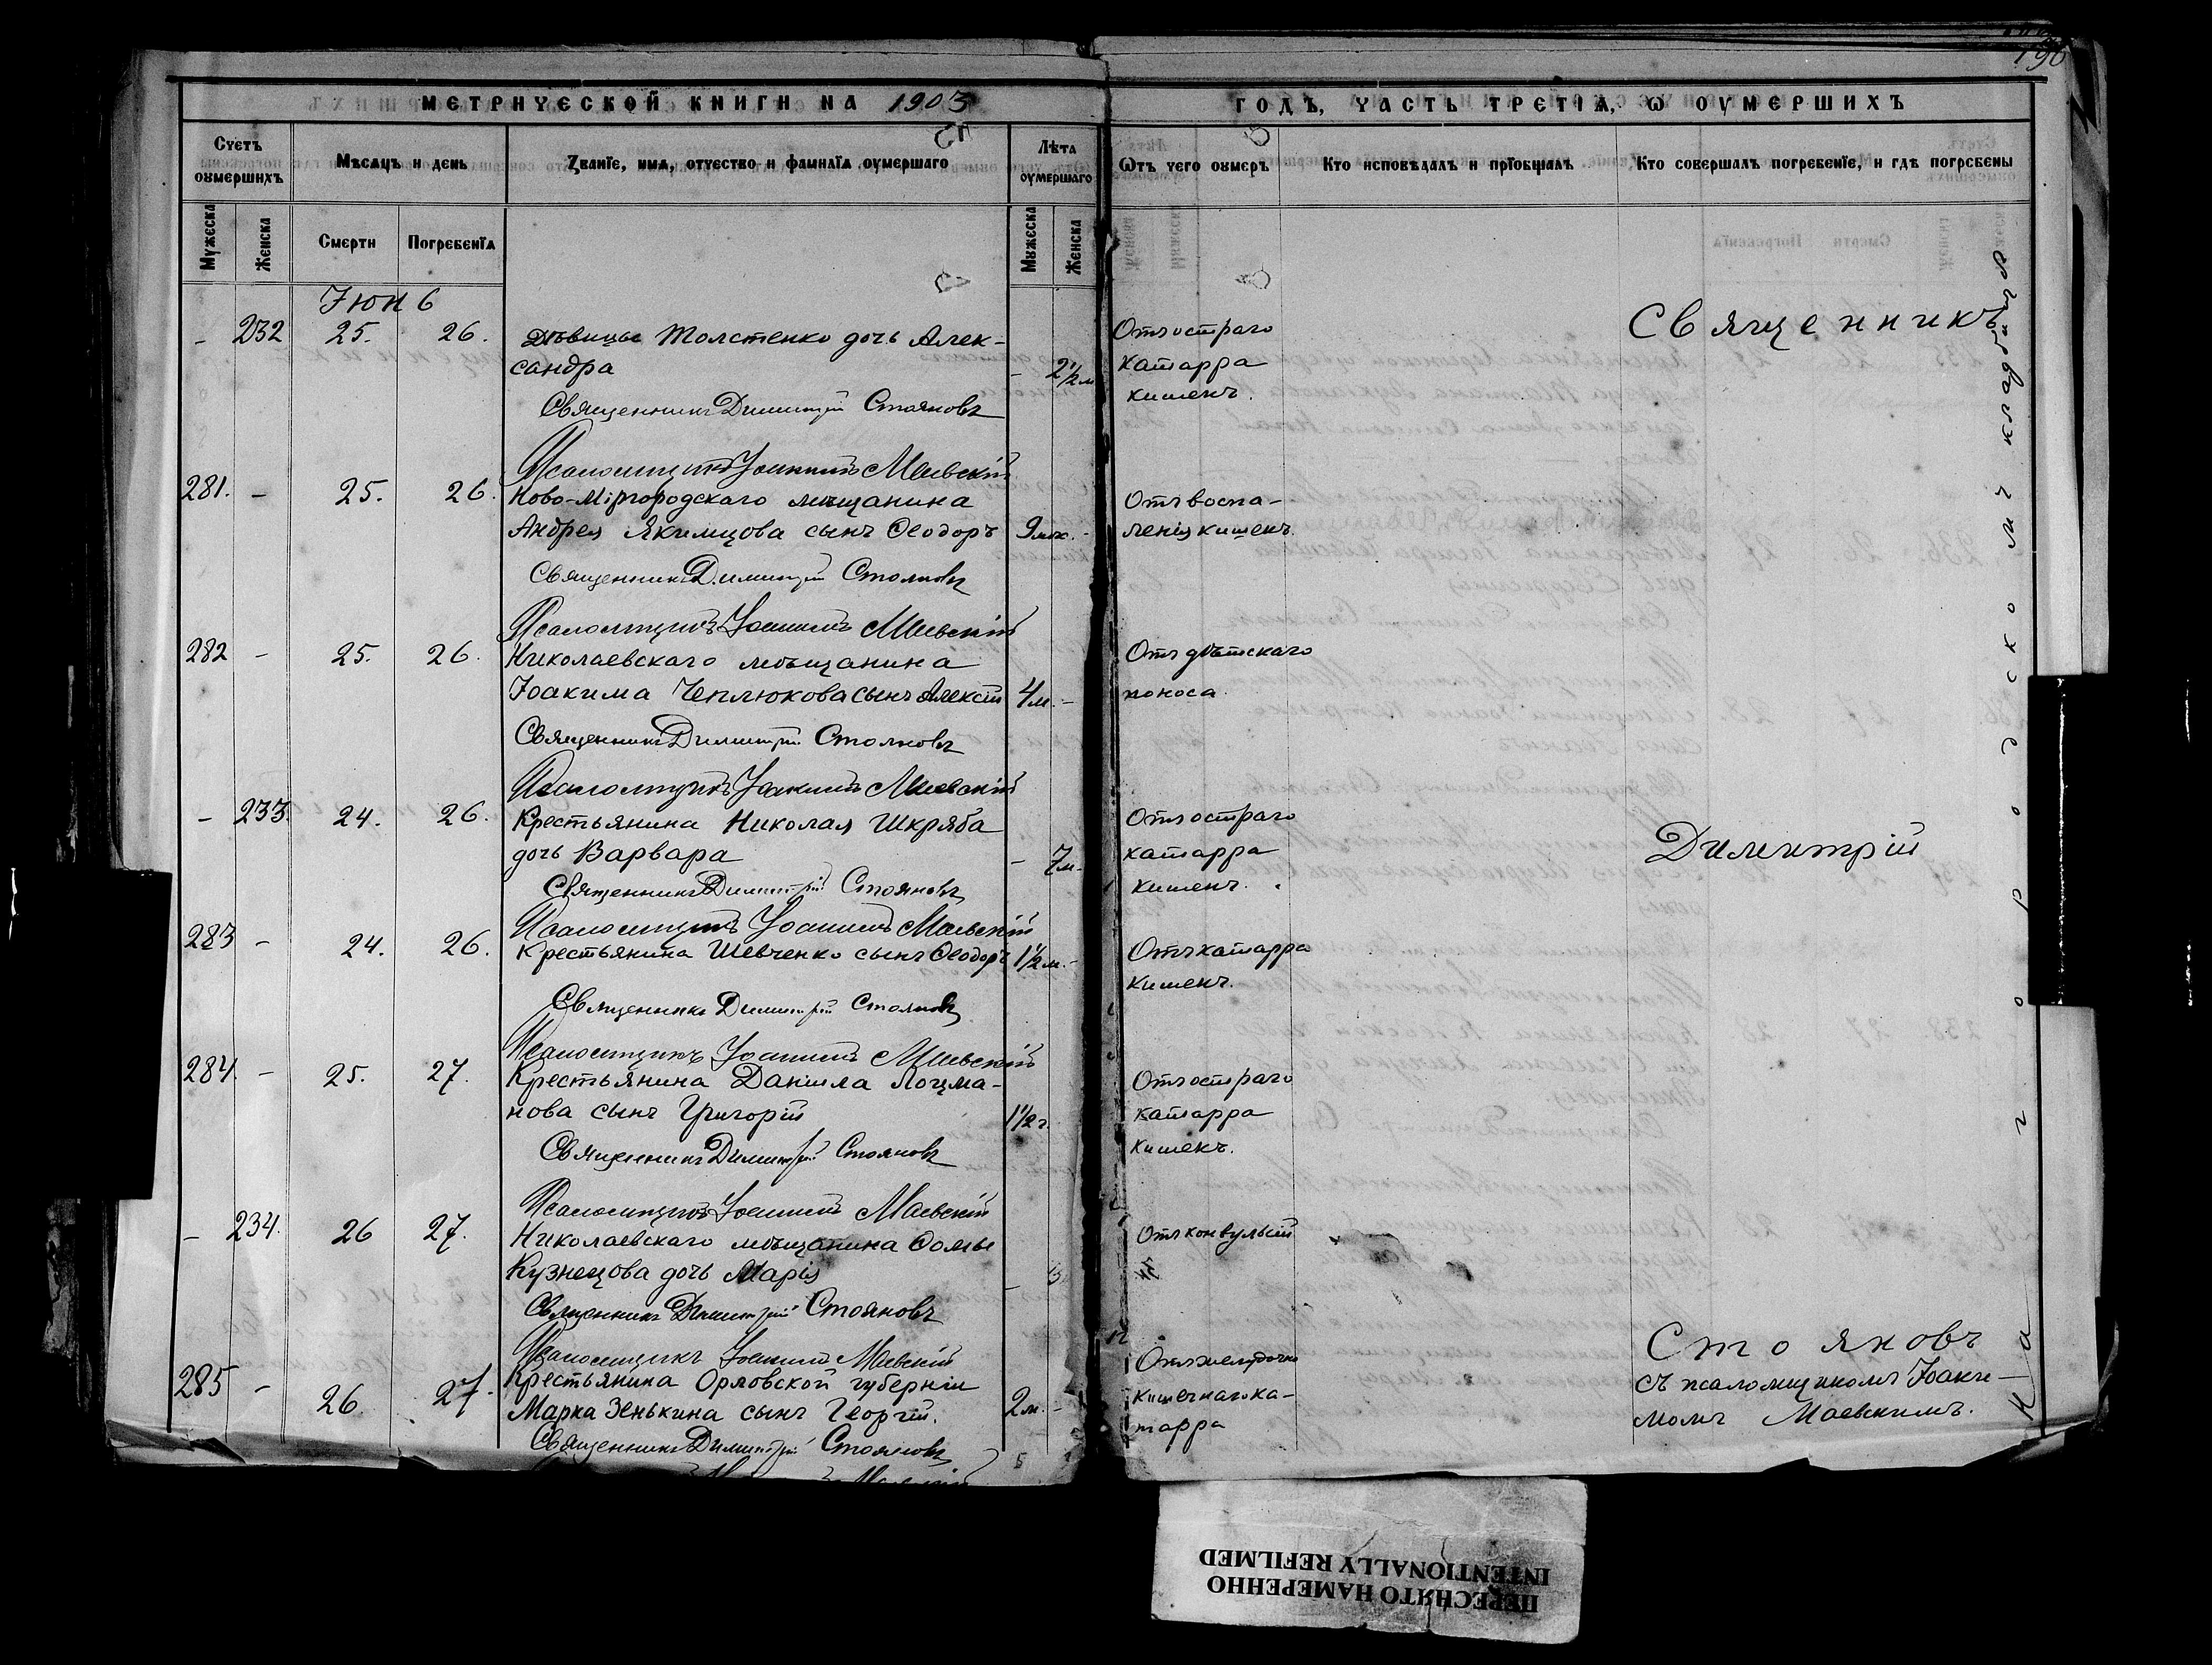 190
МЕТРИЧЕСКОЙ КНИГИ НА 1903
ГОДЪ, ЧАСТЬ ТРЕТІѦ, Ѡ ОУМЕРШИХЪ
Счетъ оумершихъ
Мѣсѧцъ и день
Званїе, имѧ, отчество и фамилїѧ оумершаго
Лѣта оумершаго
Ѡтъ чего оумеръ
Кто исповѣдалъ и прїобщалъ
Кто совершалъ погребенїе, и гдѣ погребены
Мужеска
Женска
Смерти
Погребенїѧ
Мужеска
Женска
Іюнь
- 232 25. 26. дѣвицы Толстенко дочь Алек-
сандра - 2 1/2 м
Отъ остраго
катарра
кишекъ.
Священникъ Димитрій Стояновъ
Псаломщикъ Іоакимъ Маевскій
281. - 25. 26. Ново-Міргородскаго мѣщанина
Андрея Якимцова сынъ Ѳеодоръ 9 мѣс. -
Отъ воспа-
ленія кишекъ.
Священникъ Димитрій Стояновъ
Псаломщикъ Іоакимъ Маевскій
282 - 25. 26. Николаевскаго мѣщанина
Іоакима Чеплюкова сынъ Алексій 4 м. -
Отъ дѣтскаго
поноса
Священникъ Димитрій Стояновъ
Псаломщикъ Іоакимъ Маевскій
- 233. 24. 26. Крестьянина Николая Шкряба
дочь Варвара - 7 м.
Отъ остраго
катарра
кишекъ.
Священникъ Димитрій Стояновъ
Псаломщикъ Іоакимъ Маевскій
283 - 24. 26. Крестьянина Шевченко сынъ Ѳеодоръ 1 1/2 м. -
Отъ катарра
кишекъ.
Священникъ Димитрій Стояновъ
Псаломщикъ Іоакимъ Маевскій
284. - 25. 27. Крестьянина Даніила Лоцма-
нова сынъ Григорій 1 1/2 г.
Отъ остраго
катарра
кишекъ.
Священникъ Димитрій Стояновъ
Псаломщикъ Іоакимъ Маевскій
- 234. 26 27. Николаевскаго мѣщанина Ѳомы
Кузнецова дочь Марія - 3
Отъ конвульсій
Священникъ Димитрій Стояновъ
Псаломщикъ Іоакимъ Маевскій
285 - 26 27. Крестьянина Орловской губерніи
Марка Зенькина сынъ Георгій. 2 м. -
Отъ желудочно
кишечнаго ка-
тарра
Священникъ Димитрій Стояновъ
Священникъ
Димитрій
Стояновъ
съ псаломщикомъ Іоаки-
момъ Маевскимъ.
На городскомъ кладбищѣ
ПЕРЕСНЯТО НАМЕРЕННО
INTENTIONALLY REFILMED